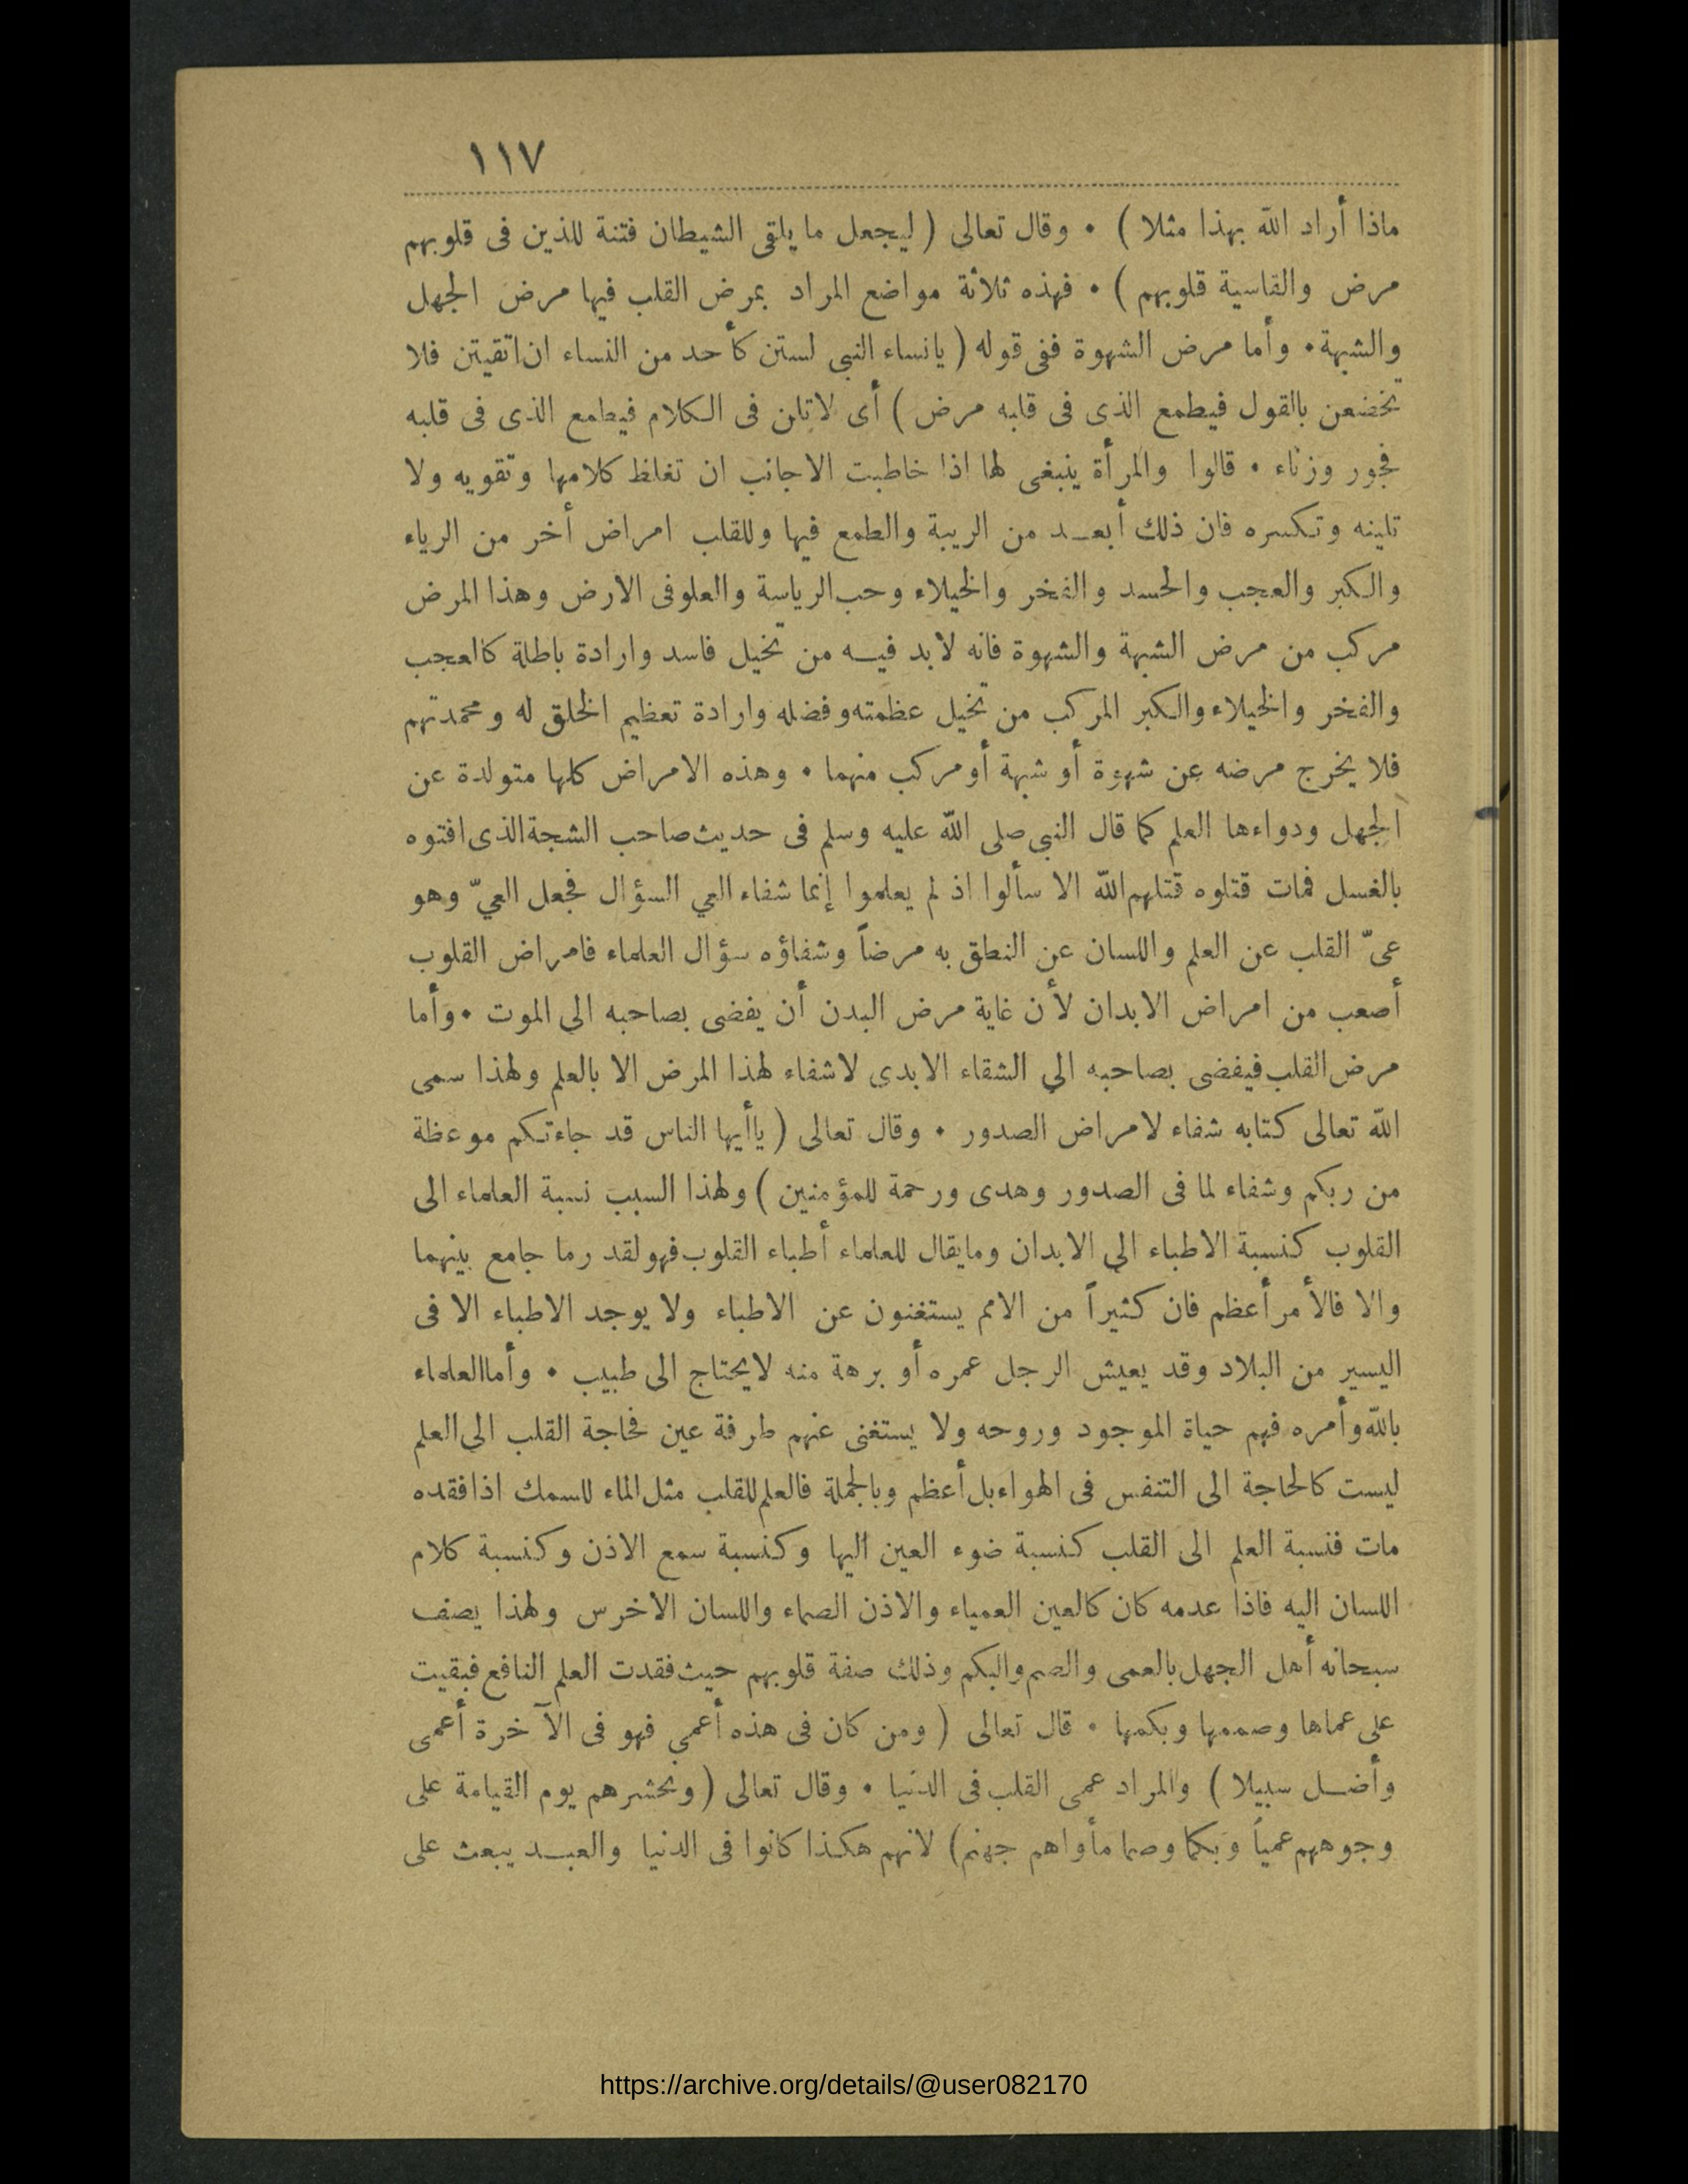 ١١٧
ماذا أراد الله بهذا مثلا ) • وقال تعالى ( ليجعل ما يلقى الشيطان فتنة للذين فى قلوبهم
مرض والقاسية قلوبهم ) • فهذه ثلاثة مواضع المراد بمرض القلب فيها مرض الجهل
والشبهة • وأما مرض الشهوة ففى قوله ( يانساء النبى لستن كأحد من النساء ان اتقيتن فلا
تخضعن بالقول فيطمع الذى فى قلبه مرض ) أى لاتلن فى الكلام فيطمع الذى فى قلبه
فجور وزناء • قالوا والمرأة ينبغى لها اذا خاطبت الاجانب ان تغلظ كلامها وتقويه ولا
تلينه وتكسره فان ذلك أبعـد من الريبة والطمع فيها وللقلب امراض أخر من الرياء
والكبر والعجب والحسد والفخر والخيلاء وحب الرياسة والعلو فى الارض وهذا المرض
مركب من مرض الشبهة والشهوة فانه لابد فيـه من تخيل فاسد وارادة باطلة كالعجب
والفخر والخيلاء والكبر المركب من تخيل عظمته وفضله وارادة تعظيم الخلق له ومحمدتهم
فلا يخرج مرضه عن شهوة أو شبهة أو مركب منهما • وهذه الامراض كلها متولدة عن
الجهل ودواءها العلم كما قال النبى صلى الله عليه وسلم فى حديث صاحب الشجة الذى افتوه
بالغسل فمات قتلوه قتلهم الله الا سألوا اذ لم يعلموا إنما شفاء العي السؤال فجعل العيّ وهو
عىّ القلب عن العلم واللسان عن النطق به مرضاً وشفاؤه سؤال العلماء فامراض القلوب
أصعب من امراض الابدان لأن غاية مرض البدن أن يفضى بصاحبه الى الموت • وأما
مرض القلب فيفضى بصاحبه الي الشقاء الابدى لاشفاء لهذا المرض الا بالعلم ولهذا سمى
الله تعالى كتابه شفاء لامراض الصدور • وقال تعالى ( ياأيها الناس قد جاءتكم موعظة
من ربكم وشفاء لما فى الصدور وهدى ورحمة للمؤمنين ) ولهذا السبب نسبة العلماء الى
القلوب كنسبة الاطباء الي الابدان ومايقال للعلماء أطباء القلوب فهو لقد رما جامع بينهما
والا فالأمر أعظم فان كثيراً من الامم يستغنون عن الاطباء ولا يوجد الاطباء الا فى
اليسير من البلاد وقد يعيش الرجل عمره أو برهة منه لايحتاج الى طبيب • وأما العلماء
بالله وأمره فهم حياة الموجود وروحه ولا يستغنى عنهم طرفة عين فحاجة القلب الى العلم
ليست كالحاجة الى التنفس فى الهواء بل أعظم وبالجملة فالعلم للقلب مثل الماء للسمك اذا فقده
مات فنسبة العلم الى القلب كنسبة ضوء العين اليها وكنسبة سمع الاذن وكنسبة كلام
اللسان اليه فاذا عدمه كان كالعين العمياء والاذن الصماء واللسان الاخرس ولهذا يصف
سبحانه أهل الجهل بالعمى والصم والبكم وذلك صفة قلوبهم حيث فقدت العلم النافع فبقيت
على عماها وصممها وبكمها • قال تعالى ( ومن كان فى هذه أعمي فهو فى الآخرة أعمى
وأضـل سبيلا ) والمراد عمى القلب فى الدنيا • وقال تعالى ( ونحشرهم يوم القيامة على
وجوههم عمياً وبكما وصما مأواهم جهنم) لانهم هكذا كانوا فى الدنيا والعبـد يبعث على
https://archive.org/details/@user082170